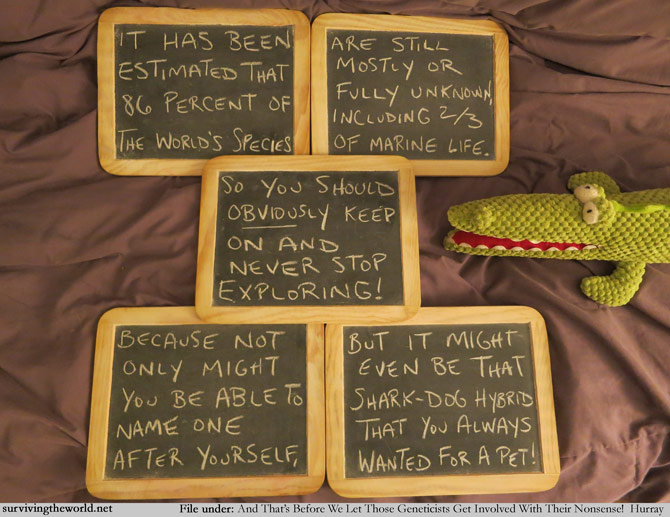 IT HAS BEEN
ESTIMATED THAT
86 PERCENT OF
THE WORLD'S SPECIES
ARE STILL
MOSTLY OR
FULLY UNKNOWN,
INCLUDING 2/3
OF MARINE LIFE.
SO YOU SHOULD
OBVIOUSLY KEEP
ON AND
NEVER STOP
EXPLORING!
BECAUSE NOT
ONLY MIGHT
YOU BE ABLE TO
NAME ONE
AFTER YOURSELF,
BUT IT MIGHT
EVEN BE THAT
SHARK-DOG HYBRID
THAT YOU ALWAYS
WANTED FOR A PET!
survivingtheworld.net
File under: And That's Before We Let Those Geneticists Get Involved With Their Nonsense! Hurray